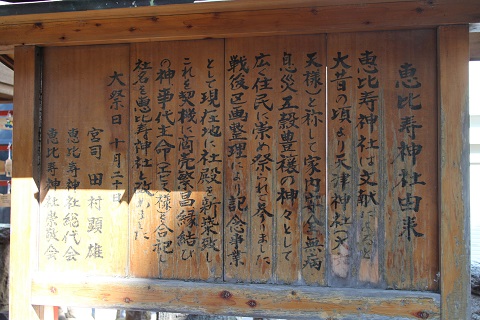 恵比寿神社由来
恵比寿神社は文献によると
大昔の頃より天津神社(天
天様)と称して家内安全無病
息災五穀豊穣の神々として
広く住民に崇め祭られて参りました
戦後区画整理により記念事業
として現在地に社殿を新築致し
これを契機に商売繁昌縁結び
の神事代主命ヱビス様を合祀し
社名を恵比寿神社と改めました
大祭日 十月二十日
宮司 田村顕雄
恵比寿神社総代会
恵比寿神社崇敬会